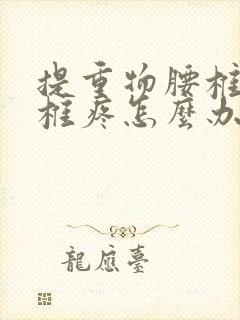 提重物腰椎
椎疼怎麼办
龍應臺